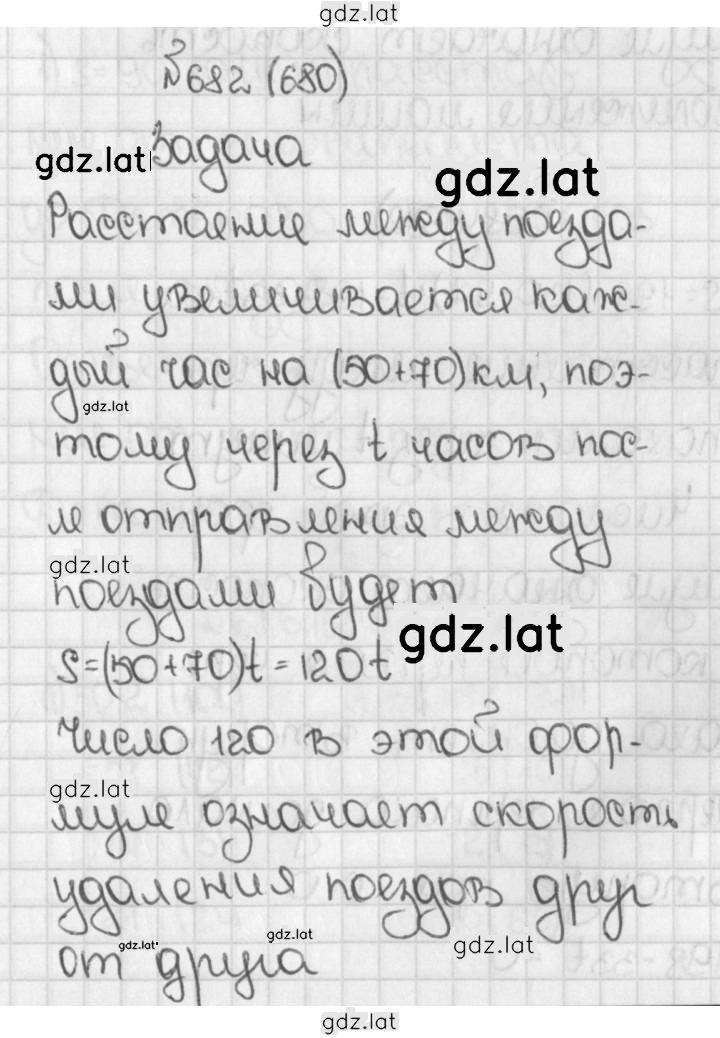 gdz.lat
№682 (680)
gdz.lat Задача
gdz.lat
Расстояние между поезда-
ми увеличивается каж-
дый час на (50+70)км, поэ-
gdz.lat
тому через t часов пос-
ле отправления между
gdz.lat
поездами будет
gdz.lat
S=(50+70)t=120t
Число 120 в этой фор-
gdz.lat
муле означает скорость
удаления поездов друг
gdz.lat
от gdz.lat друга gdz.lat
gdz.lat